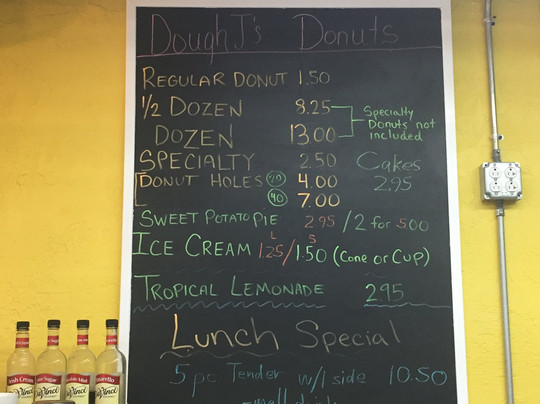 Dough J's Donuts
REGULAR DONUT 1.50
1/2 DOZEN 8.25
DOZEN 13.00
Specialty
Donuts not
included
SPECIALTY 2.50
Cakes
2.95
DONUT HOLES 20 4.00
40 7.00
SWEET POTATO PIE 2.95 / 2 for 5.00
ICE CREAM L 1.25 / S 1.50 (Cone or Cup)
TROPICAL LEMONADE 2.95
Lunch Special
5 pc Tender w/1 side 10.50
Irish Cream
DaVinci
DaVinci
DaVinci
Amaretto
DaVinci